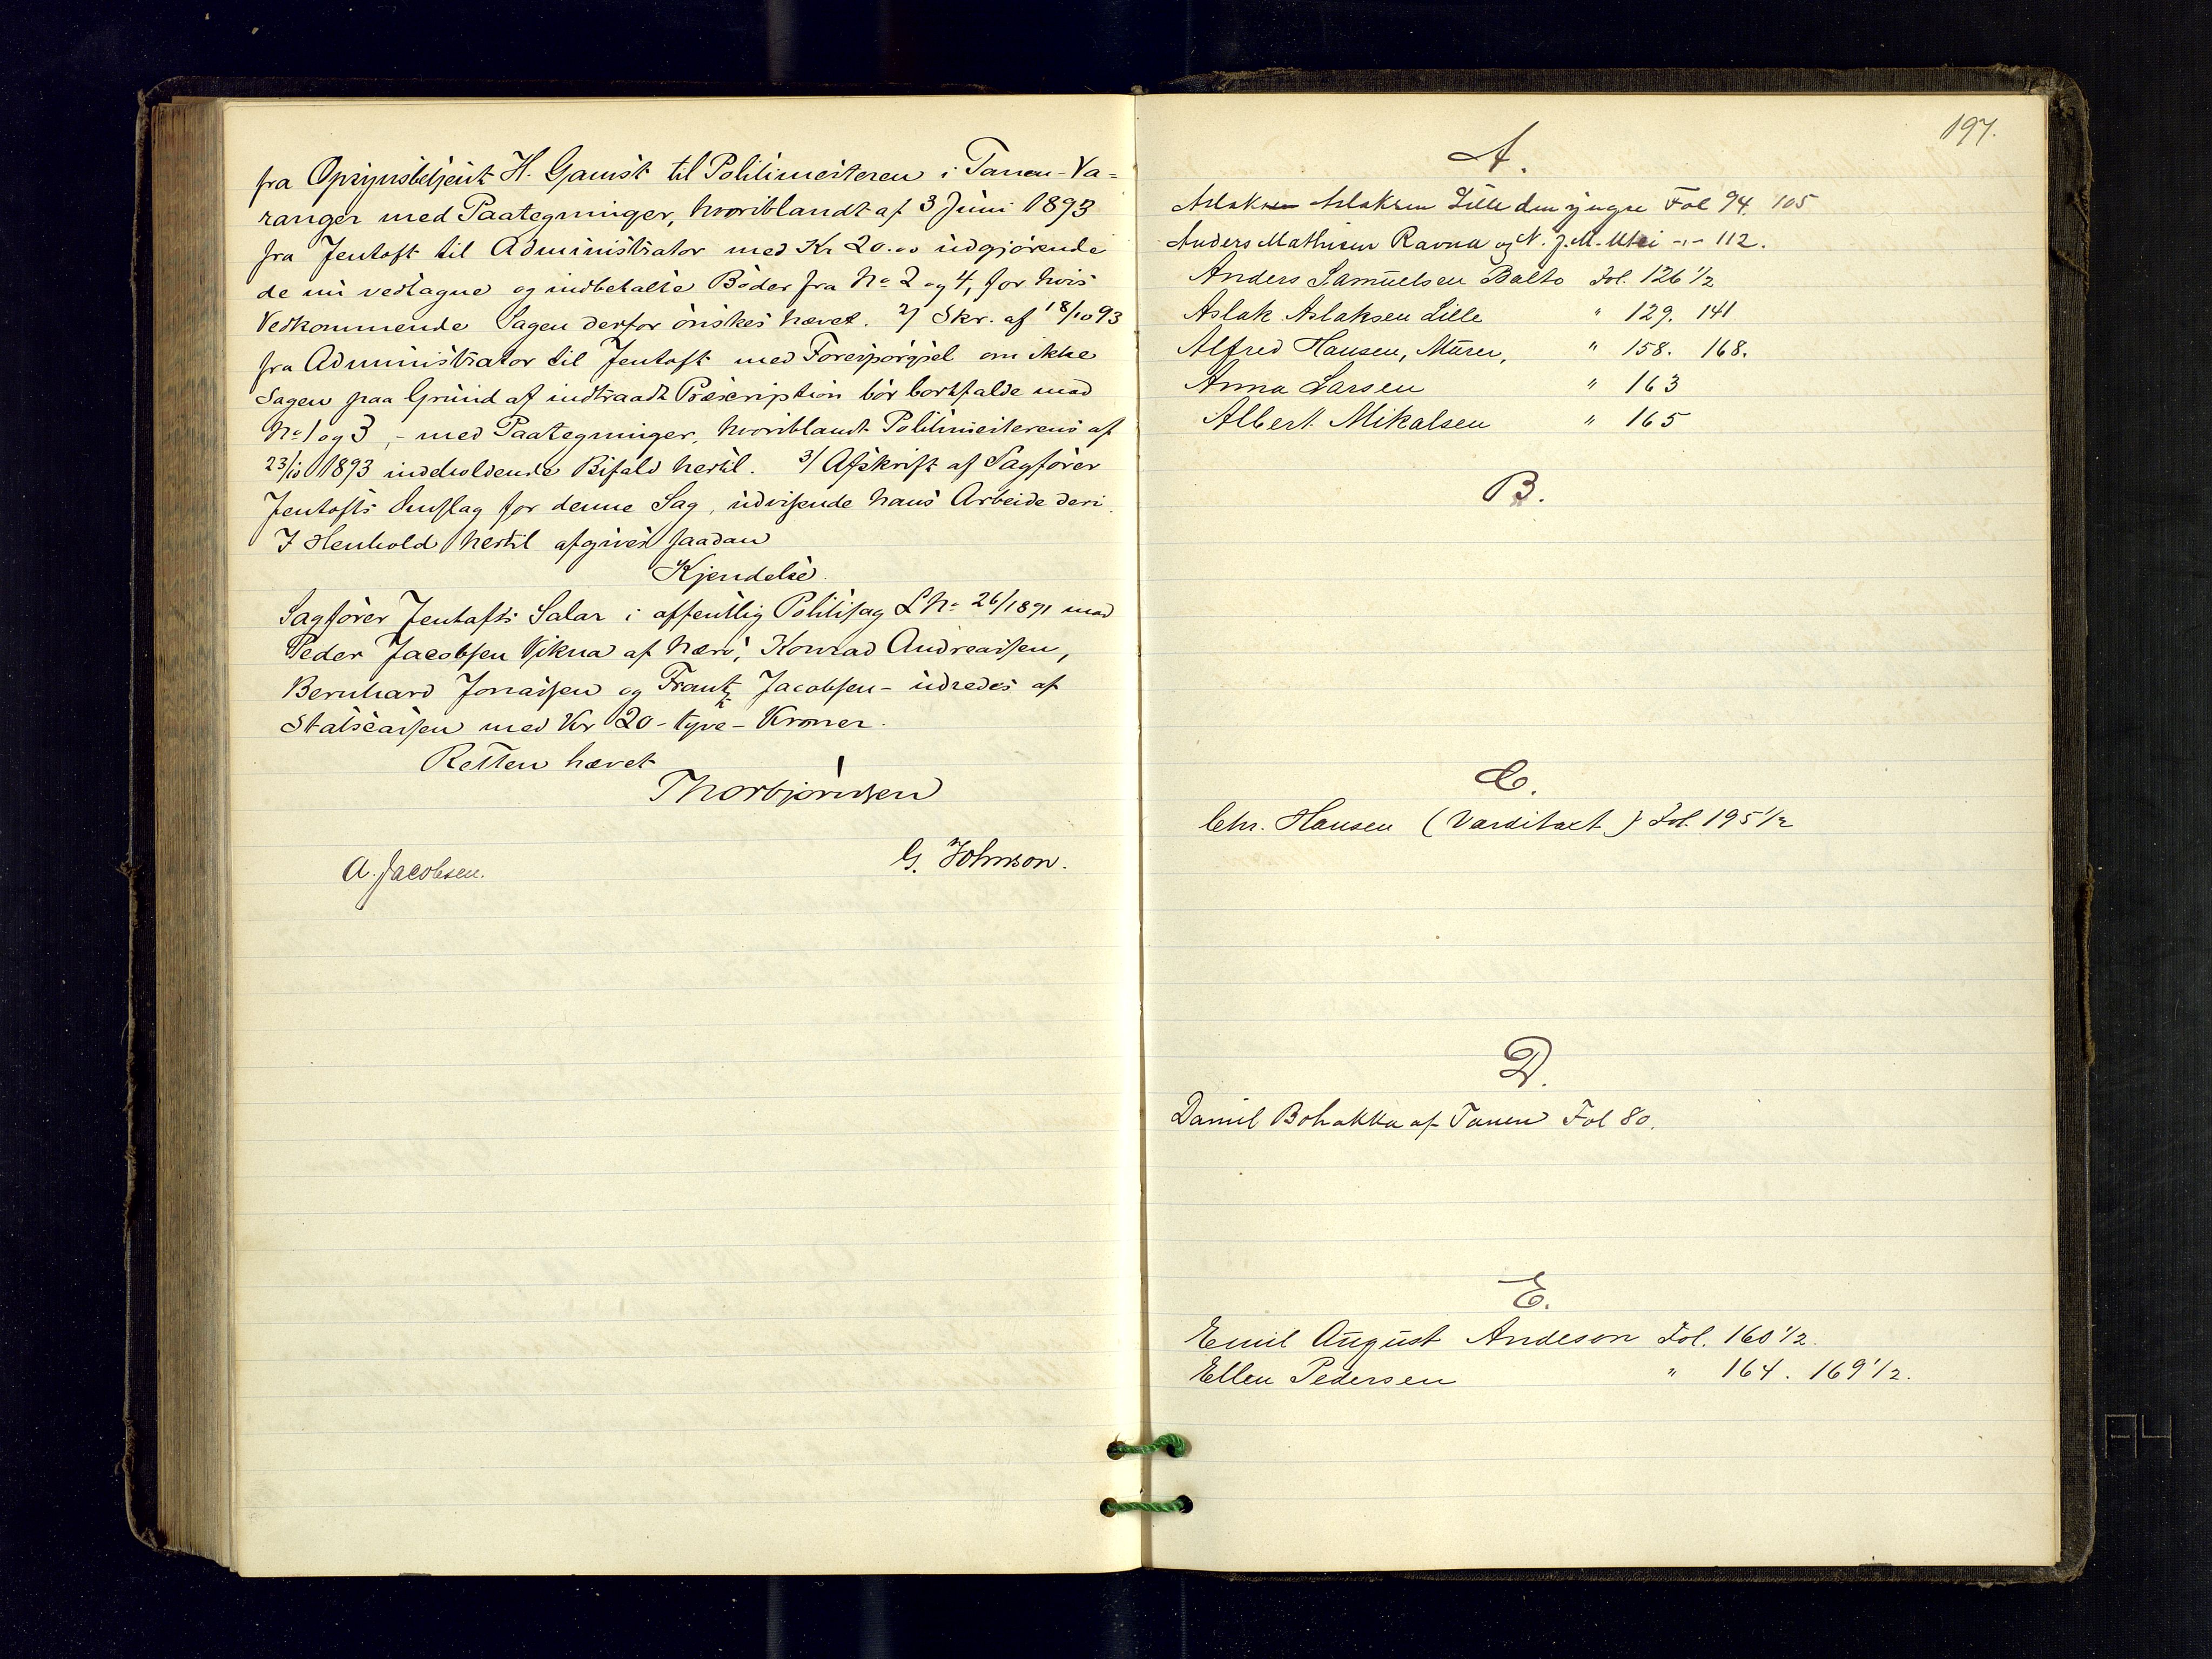 fra Opsynsbetjent H. Gamst til Politimesteren i Tanen-Va=
ranger med Paategninger, hvoriblandt af 3 Juni 1893
fra Jentoft til Administrator med Kr 20.00 udgjørende
de nu vedtagne og indbetalte Bøder fra No 2 og 4, for hvis
Vedkommende Sagen derfor ønskes hævet. 2/ Skr. af 18/10 93
fra Administrator til Jentoft med Forespørgsel om ikke
Sagen paa Grund af indtraadt Præscription bør bortfalde mod
No 1 og 3, - med Paategninger, hvoriblandt Politimesterens af
23/10 1893 indeholdende Bifald hertil. 3/ Afskrift af Sagfører
Jentofts Omslag for denne Sag, udvisende hans Arbeide deri.
I Henhold hertil afgives saadan
Kjendelse.
Sagfører Jentofts Salær i offentlig Politisag L No 26/1891 mod
Peder Jacobsen Vikna af Nærø, Konrad Andreassen,
Bernhard Jonassen og Frantz Jacobsen - udredes af
Statscassen med Kr 20 - tyve - Kroner.
Retten hævet
Thorbjørnsen
G. Johnson.
A. Jacobsen.
197.
A.
Aslak Aslaksen Lille den yngre Fol 94. 105
Anders Mathisen Ravna og N. J. M. Utsi -"- 112.
Anders Samuelsen Balto Fol. 126 1/2
Aslak Aslaksen Lille " 129. 141
Alfred Hansen, Murer, " 158. 168.
Anna Larsen " 163
Albert Mikalsen " 165
B.
C.
Chr. Hansen (Varditaxt) Fol. 195 1/2
D.
Daniel Bohakka af Tanen Fol 80.
E.
Emil August Andeson Fol. 160 1/2.
Ellen Pedersen " 164. 169 1/2.